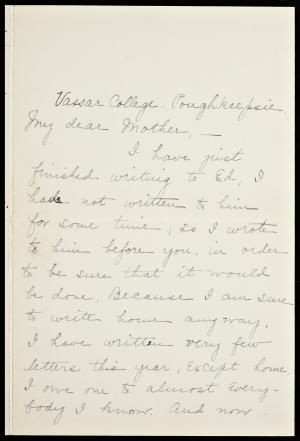 Vassar College. Poughkeepsie.
My dear Mother, —
I have just
finished writing to Ed, I
had not written to him
for some time, so I wrote
to him before you, in order
to be sure that it would
be done. Because I am sure
to write home anyway.
I have written very few
letters this year, except home,
I owe one to almost every-
body I know. And now